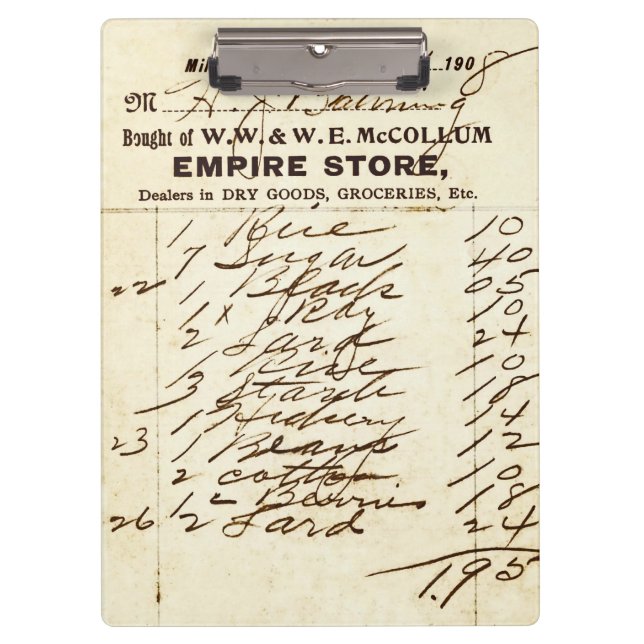 Mil 1908
M H. J.
Bought of W. W. & W. E. McCOLLUM
EMPIRE STORE,
Dealers in DRY GOODS, GROCERIES, Etc.
1 Rice 10
7 Sugar 40
22 1 Black 05
1 x 10
2 Lard 24
1 Rice 10
3 Starch 18
1 Hickory 14
23 1 Beans 12
2 cotton 10
1 Berries 18
26 2 Lard 24
1.95